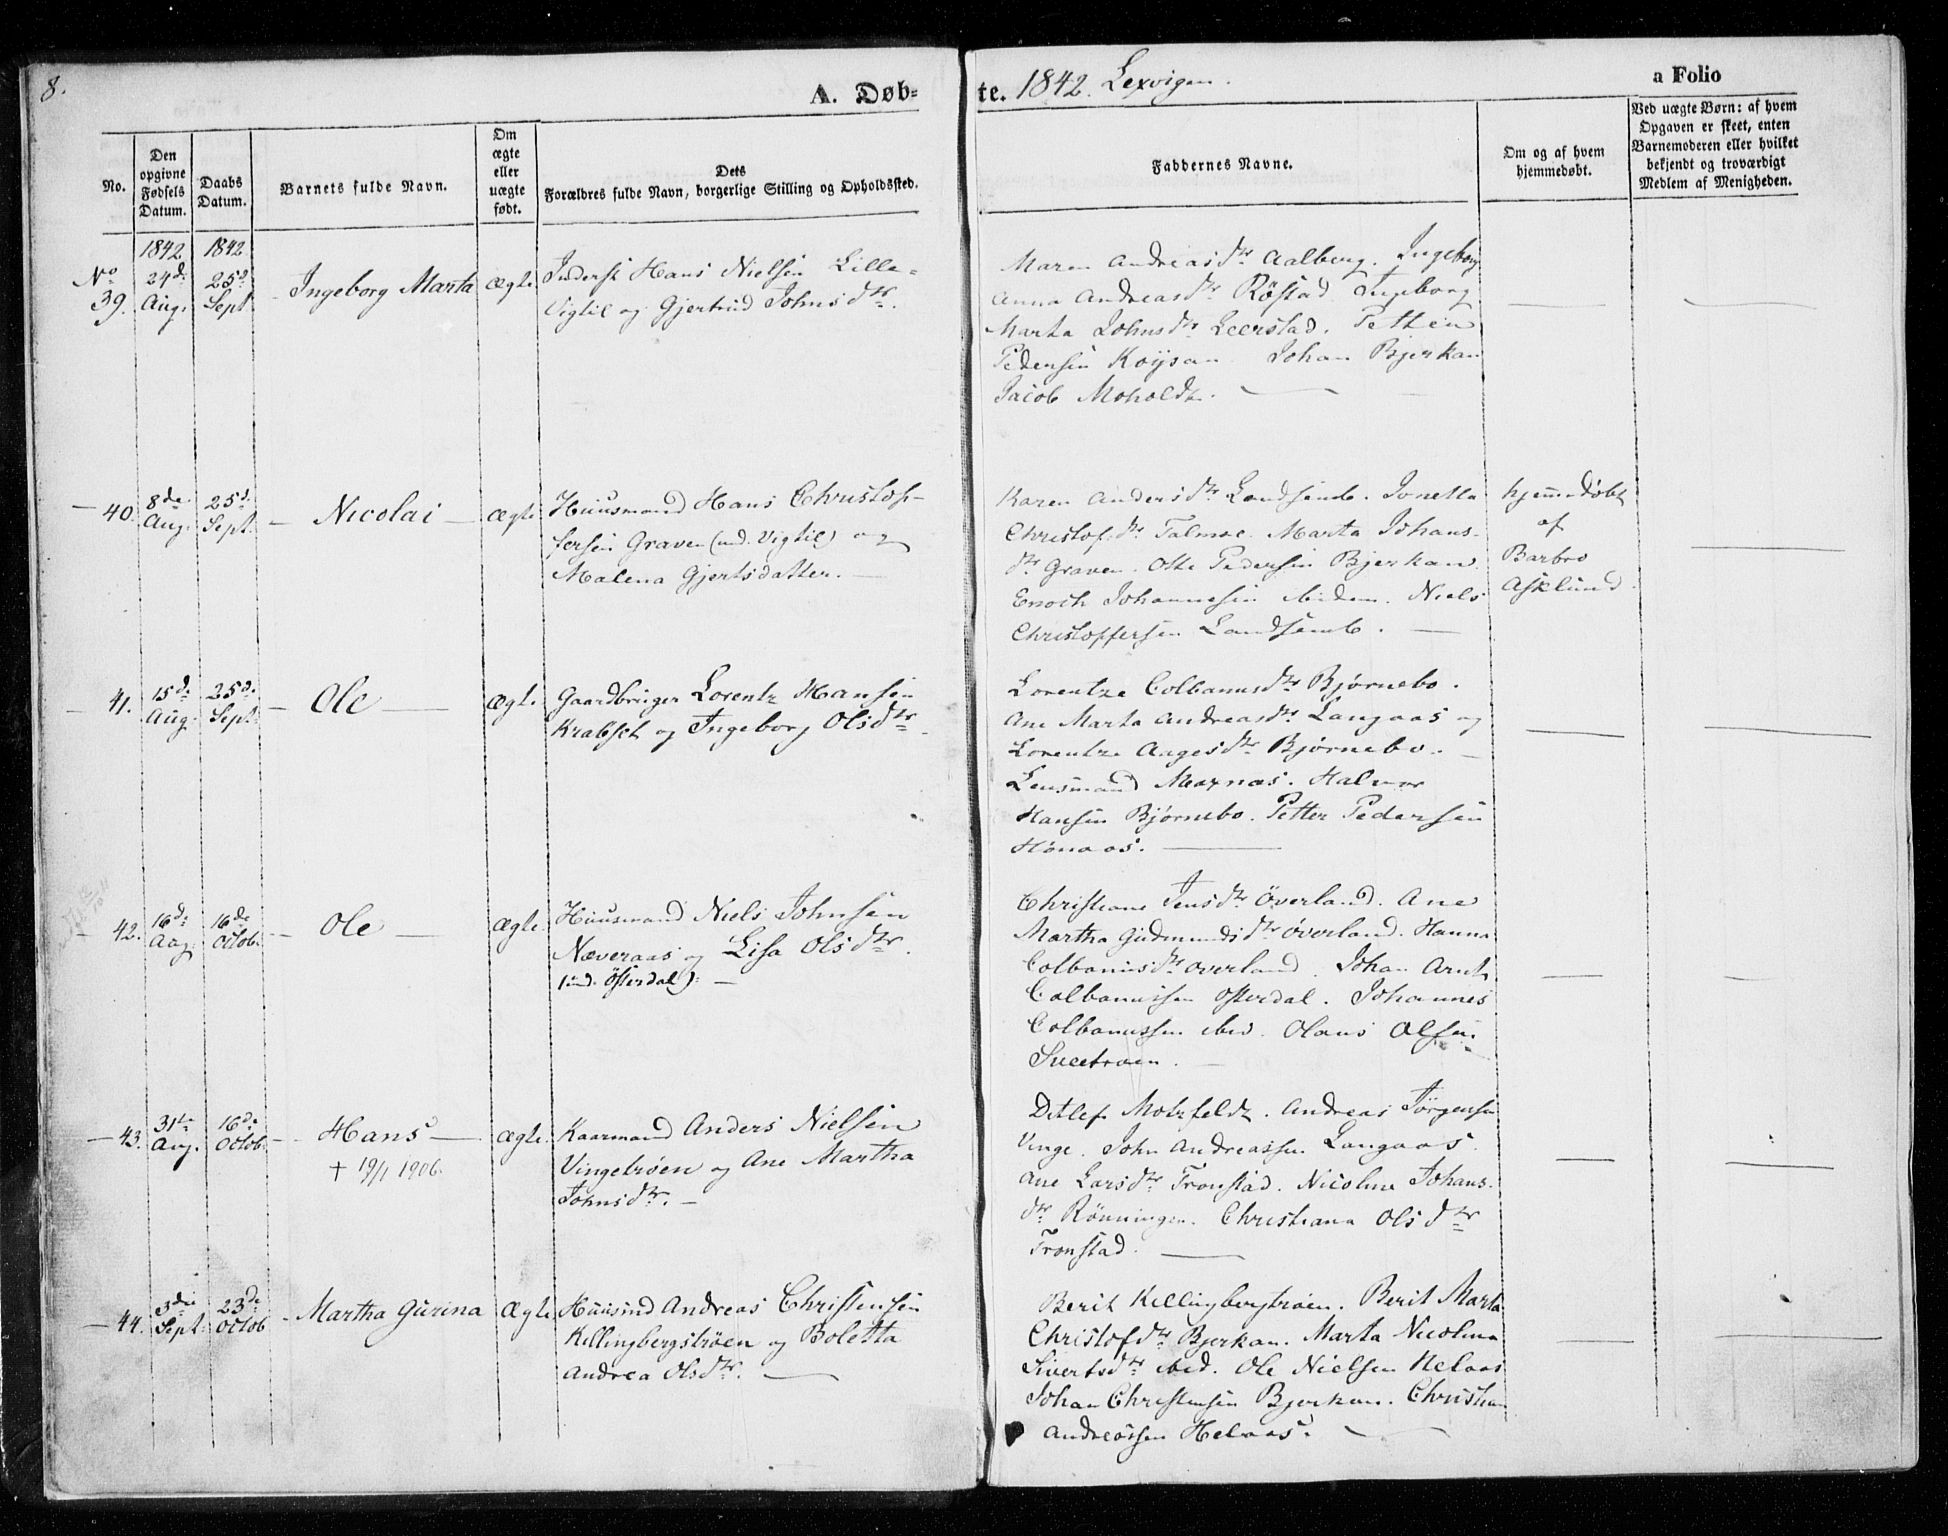 8.
A. Døb-
te. 1842. Lexvigen.
a Folio
No.
Den
opgivne
Fødsels
Datum.
Daabs
Datum.
Barnets fulde Navn.
Om
ægte
eller
uægte
født.
Dets
Forældres fulde Navn, borgerlige Stilling og Opholdssted.
Faddernes Navne.
Om og af hvem
hjemmedøbt.
Ved uægte Børn: af hvem
Opgaven er skeet, enten
Barnemoderen eller hvilket
bekjendt og troværdigt
Medlem af Menigheden.
1842 1842
No 39.
24de Aug.
25de Sept
Ingeborg Marta
ægte
Inderst Hans Nielsen Lille-
Vigtil og Gjertrud Johnsdtr.
Maren Andreasdtr Aalberg. Ingeborg
Anna Andreasdtr Røstad Ingeborg
Marta Johnsdtr Leerstad. Petter
Pedersen Johan Bjerkan
Jacob Moholdt.
40.
8de Aug.
25de Sept.
Nicolai
ægte
Huusmand Hans Christof-
fersen Graven (und. Vigtil) og
Malena Gjertsdatter.
Karen Andersdtr Landsemb. Jonetta
Christof.dtr Talmoe. Marta Johans-
dtr Graven. Otte Pedersen Bjerkan.
Enoch Johannesen ibidem. Niels
Christoffersen Landsemb.
hjemmedøbt
af
Barbro
Asklund.
41.
15de Aug.
25de Sept.
Ole
ægte
Gaardbruger Lorentz Hansen
Krabset og Ingeborg Olsdtr
Lorentze Colbanusdtr Bjørnebo.
Ane Marta Andreasdtr Langaas og
Lorentze Aagesdtr Bjørnebo.
Lensmand Moxnæs. Halvor
Hansen Bjørnebo. Petter Pedersen
Hønaas.
42.
16de Aug.
16de Octob.
Ole
ægte.
Huusmand Niels Johnsen
Næveraas og Lisa Olsdtr.
(und. Østerdal).
Christiane Jensdtr Överland. Ane
Martha Gudmundsdtr Överland. Hanna
Colbanusdtr Overland Johan Arnt
Colbanussen Osterdal. Johannes
Colbanussen ibid. Olaus Olsen
Sveetrøen.
43.
31te Aug.
16de Octob.
Hans
† 19/1 1906.
ægte.
Kaarmand Anders Nielsen
Vingetrøen og Ane Martha
Johnsdtr.
Ditlef Motzfeldt. Andreas Jörgensen
Vinge. John Andreassen Langaas.
Ane Larsdtr Tronstad. Nicoline Johans-
dtr Rönningen. Christiana Olsdtr
Tronstad.
44.
3die Sept.
23de Octob
Martha Gurina
Ægte
Huusmd Andreas Christensen
Killingbergtrøen og Boletta
Andrea Olsdtr.
Berit Killingbergtrøen. Berit Marta
Christofdtr Bjerkan. Marta Nicolina
Sivertsdtr ibid. Ole Nielsen Helaas
Johan Christensen Bjerkan. Christian
Andreassen Helaas.